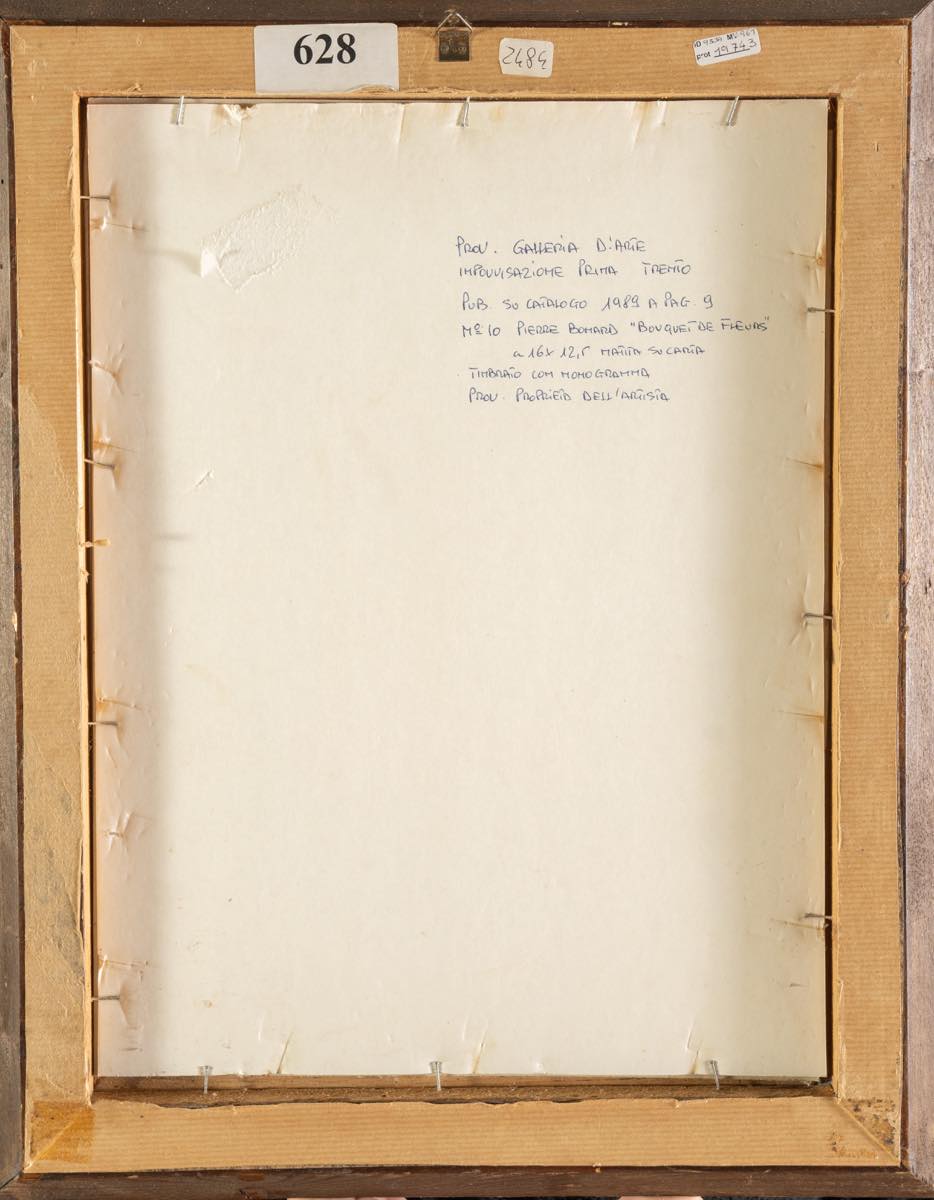 628
2484
ID 9539 MV 967
prot 19743
PROV. GALLERIA D'ARTE
IMPOVVISAZIONE PRIMA TRENTO
PUB. SU CATALOGO 1989 A PAG. 9
Nº 10 PIERRE BONARD "BOUQUET DE FLEURS"
16x 12,5 MATITA SU CARTA
TIMBRATO CON MONOGRAMMA
PROV. PROPRIETÀ DELL'ARTISTA